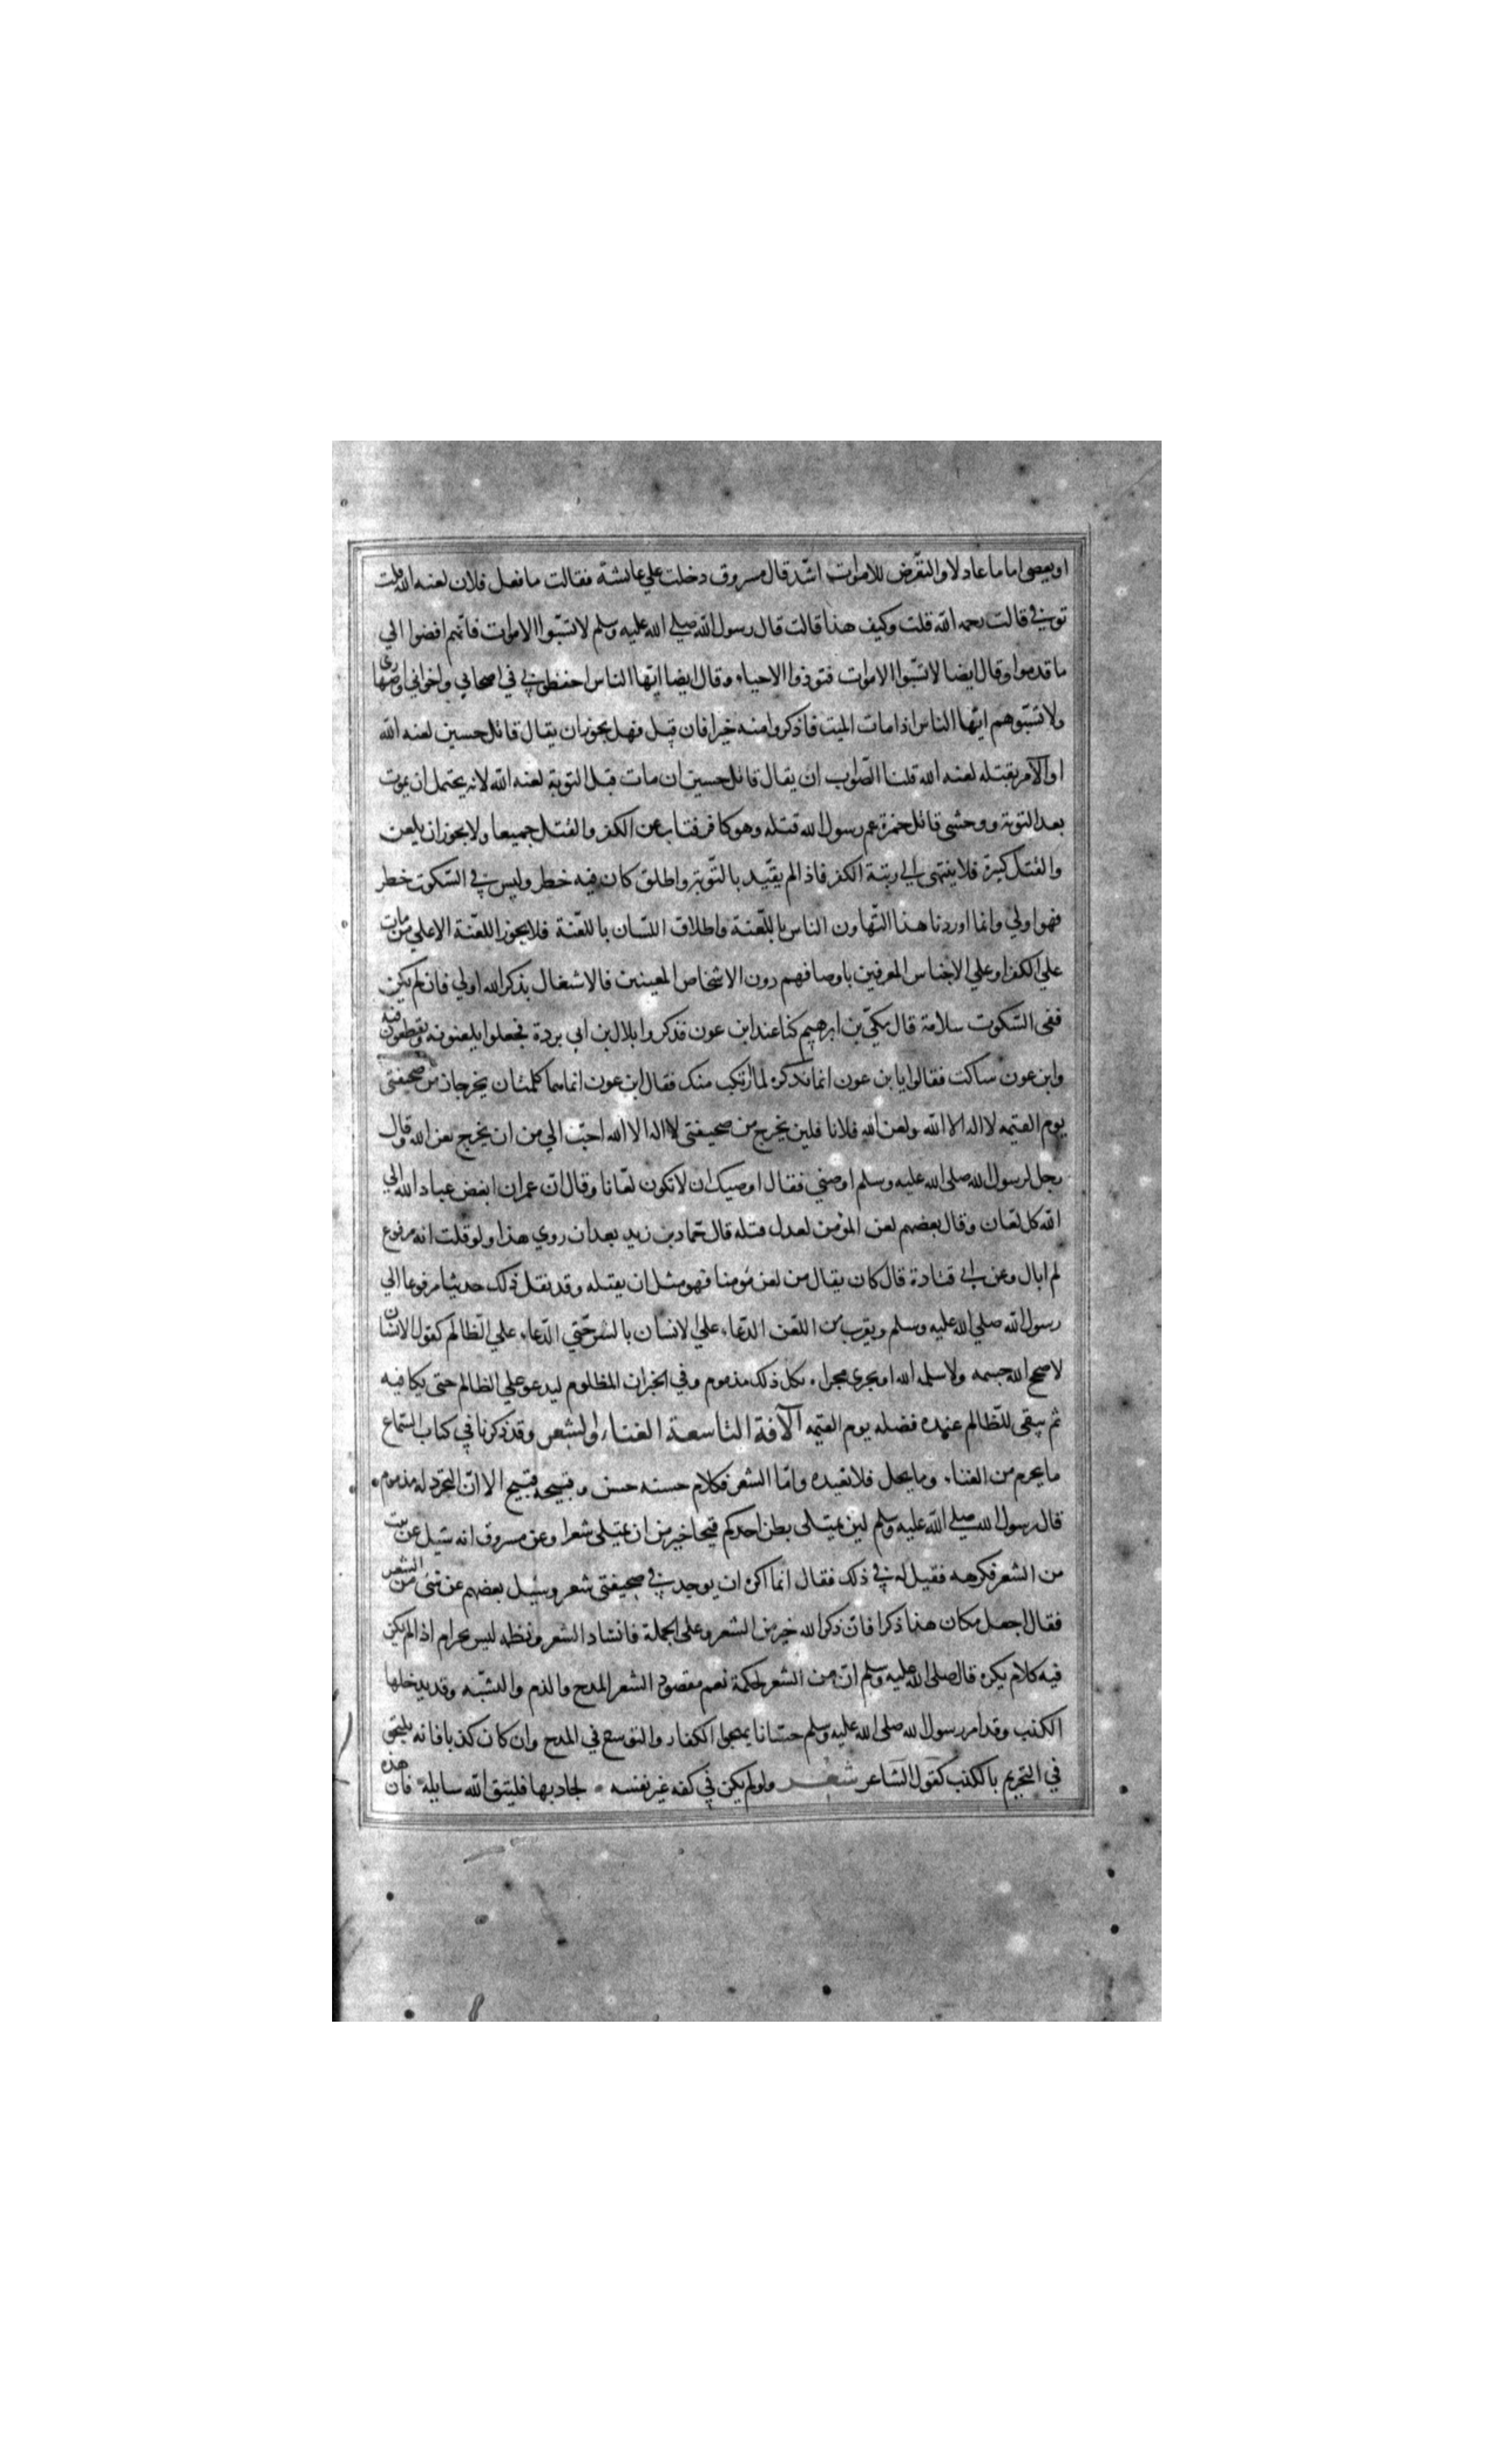 او يعصى اماما عادلا والتعرّض للاموات اشدّ قال مسروق دخلت على عائشة فقالت ما فعل فلان لعنه الله قلت
توفى قالت رحمه الله قلت وكيف هذا قالت قال رسول الله صلى الله عليه وسلم لا تسبّوا الاموات فانهم افضوا الي
ما قدموا وقال ايضا لا تسبّوا الاموات فتوذوا الاحياء وقال ايضا ايّها الناس احفظونى في اصحابي واخواني واصهارى
ولا تسبّوهم ايّها الناس اذا مات الميت فاذكروا منه خيرا فان قيل فهل يجوز ان يقال قاتل حسين لعنه الله
او الآمر بقتله لعنه الله قلنا الصّواب ان يقال قاتل حسين ان مات قبل التوبة لعنه الله لانه يحتمل ان يموت
بعد التوبة ووحشى قاتل حمزة عم رسول الله قتله وهو كافر فتاب عن الكفر والقتل جميعا ولا يجوز ان يلعن
والقتل كبيرة فلا ينتهى الي رتبة الكفر فاذا لم يقيّد بالتّوبة واطلق كان فيه خطر وليس فى السّكوت خطر
فهو اولي وانما اوردنا هذا التّهاون الناس باللّعنة واطلاق اللسان باللعّنة فلا يجوز اللعّنة الا علي من مات
علي الكفر او علي الاجناس المعرفين باوصافهم دون الاشخاص المعينين فالاشتغال بذكر الله اولي فان لم يكن
ففى السّكوت سلامة قال مكىّ بن ابرهيم كنا عند ابن عون فذكروا بلال بن ابي بردة فجعلوا يلعنونه ويقطعون فيه
وابن عون ساكت فقالوا يا بن عون انما نذكره لما ارتكب منك فقال ابن عون انما هما كلمتان يخرجان من صحيفتى
يوم القيمه لا اله الا الله ولعن الله فلانا فلين يخرج من صحيفتى لا اله الا الله احبّ الي من ان يخرج لعن الله وقال
رجل لرسول الله صلى الله عليه وسلم اوصني فقال اوصيك ان لا تكون لعّانا وقال ان عمران ابغض عباد الله الي
الله كل لعّان وقال بعضهم لعن المؤمن لعدل قتله قال حماد بن زيد بعد ان روي هذا ولو قلت انه مرفوع
لم ابال وعن ابى قتادة قال كان يقال من لعن مؤمنا فهو مثل ان يقتله وقد نقل ذلك حديثا مرفوعا الي
رسول الله صلي الله عليه وسلم ويقرب من اللعّن الدعّاء علي الانسان بالشّر حتي الدعاء علي الظالم كقول الانسان
لا صحح الله جسمه ولا سلمه الله او يجرى مجراه فكل ذلك مذموم وفي الخبر ان المظلوم ليدعو علي الظالم حتى يكافيه
ثم يبقى للظّالم عنده فضله يوم القيمه الآفة التاسعة الغناء والشعر وقد ذكرنا في كتاب السّماع
ما يحرم من الغناء وما يحل فلا نعيده وامّا الشعر فكلام حسنه حسن وقبيحه قبيح الا ان التجرّد له مذموم
قال رسول الله صلي الله عليه وسلم لين يمتلى بطن احدكم قيحا خير من ان يمتلى شعرا وعن مسروق انه سئيل عن بيت
من الشعر فكرهه فقيل له فى ذلك فقال انما اكره ان يوجد فى صحيفتى شعر وسئيل بعضهم عن شئ من الشعر
فقال اجعل مكان هذا ذكرا فان ذكر الله خير من الشعر وعلى الجملة فانشاد الشعر ونظمه ليس بحرام اذا لم يكن
فيه كلام يكره قال صلى الله عليه وسلم ان من الشعر لحكمة نعم مقصود الشعر المدح والذم والتشبّه وقد يدخلها
الكذب وقد امر رسول الله صلى الله عليه وسلم حسّانا يهجوا الكفار والتوسع في المدح وان كان كذبا فانه يلتحق
في التحريم بالكذب كقول الشاعر شعر ولو لم يكن في كفه غير نفسه لجاد بها فليتق الله سايله فان هذه